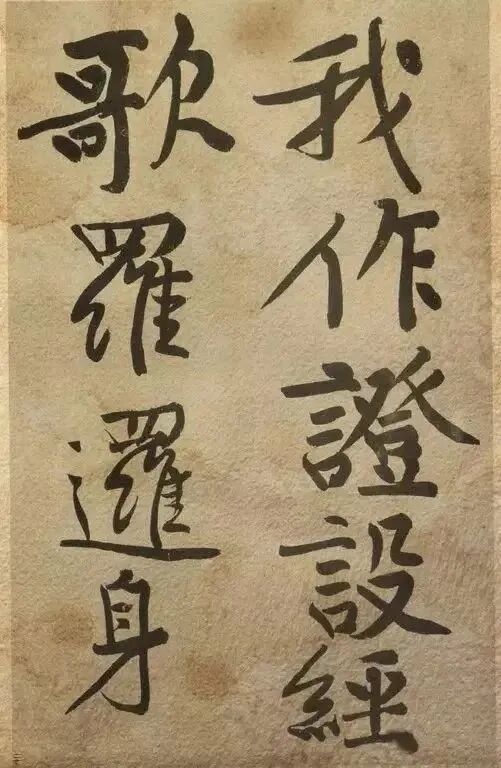 我作證設經
歌羅邏身